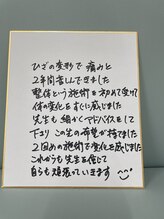 ひざの変形で 痛みと
2年間苦しんできました
整体という施術を初めて受けて
体の変化をすぐに感じました
先生も 細かくアドバイスをして
下さり この先の希望が持てました
2回めの施術で変化を感じました
これからも先生を信じて
自らも頑張っていきます